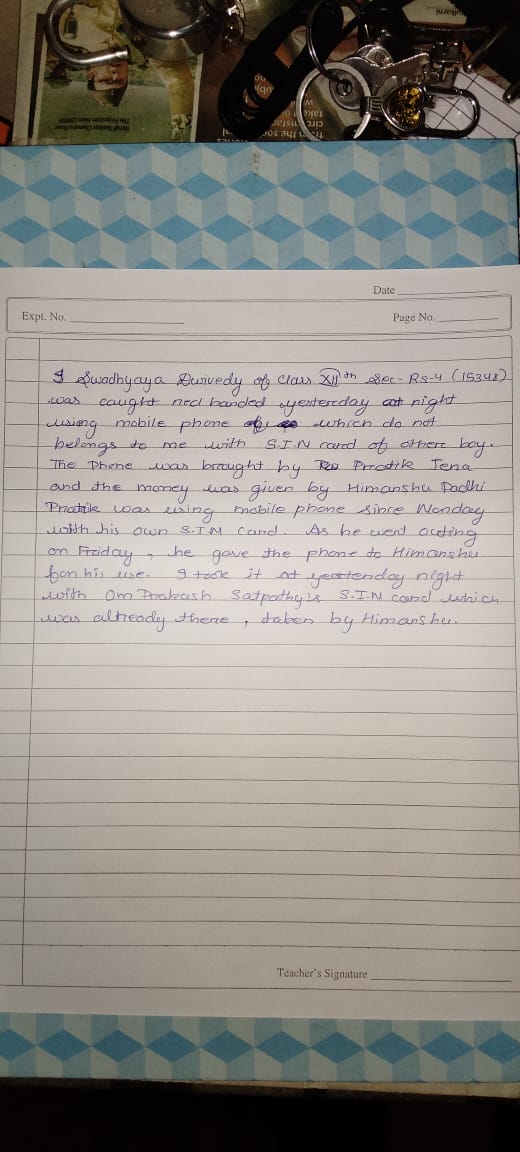 Netaji Subhas Chandra Bose
The Forgotten Hero (2005)
Date
Expt. No.
Page No.
I Swadhyaya Dwivedy of class XIIth Sec - RS-4 (15348)
was caught red handed yesterday at night
using mobile phone which do not
belongs to me with S.I.M card of other boy.
The Phone was brought by Pratik Jena
and the money was given by Himanshu Padhi
Pratik was using mobile phone since Monday
with his own S.I.M Card. As he went outing
on Friday, he gave the phone to Himanshu
for his use. I took it at yesterday night
with Om Prakash Satpathy's S.I.M card which
was already there, taken by Himanshu.
Teacher's Signature